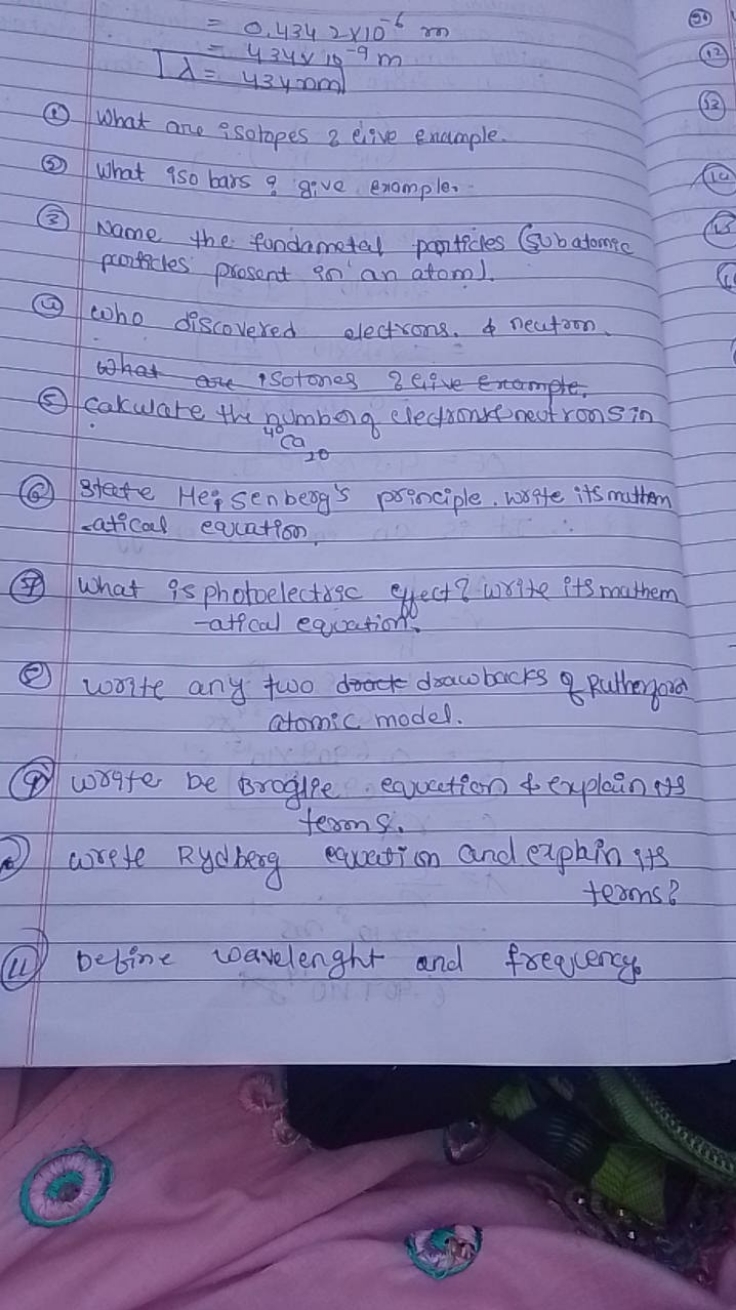 = 0.4342×10⁻⁶ m
= 434×10⁻⁹ m
λ = 434nm
① What are isotopes? Give example.
② What iso bars? give example.
③ Name the fundametal particles (subatomic
particles present in an atom).
④ who discovered electrons. & neutron.
What are isotones? Give example.
⑤ Calculate the number of electrons & neutrons in
⁴⁰Ca₂₀
⑥ State Heisenberg's principle. write its mathem
-atical equation.
⑦ What is photoelectric effect? write its mathem
-atical equation.
⑧ write any two drawbacks of Rutherford
atomic model.
⑨ write De Broglie equation & explain its
terms.
write Rydberg equation and explain its
terms?
⑪ Define wavelenght and frequency.
⑫
⑬